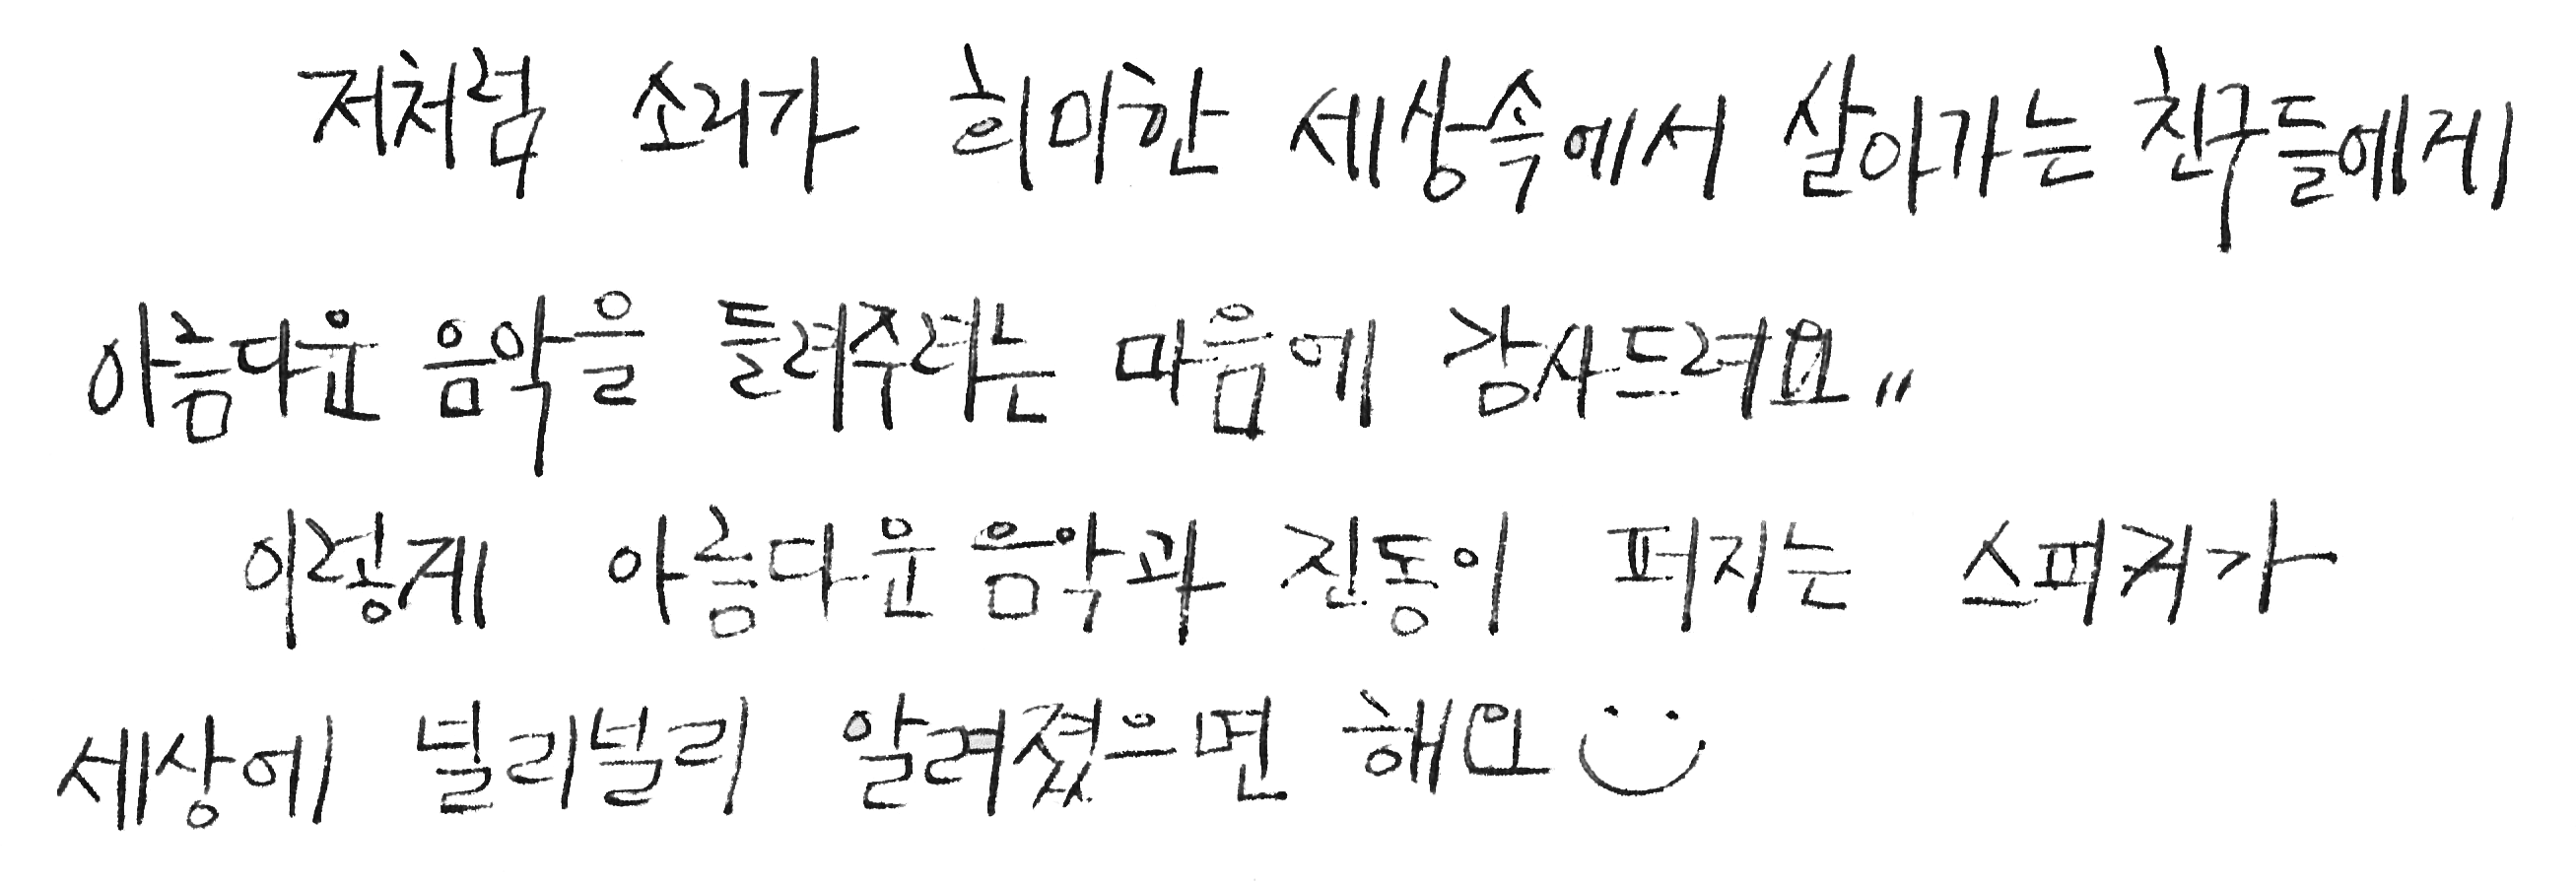 저처럼 소리가 희미한 세상속에서 살아가는 친구들에게
아름다운 음악을 들려주려는 마음에 감사드려요,,
이렇게 아름다운 음악과 진동이 퍼지는 스피커가
세상에 널리널리 알려졌으면 해요